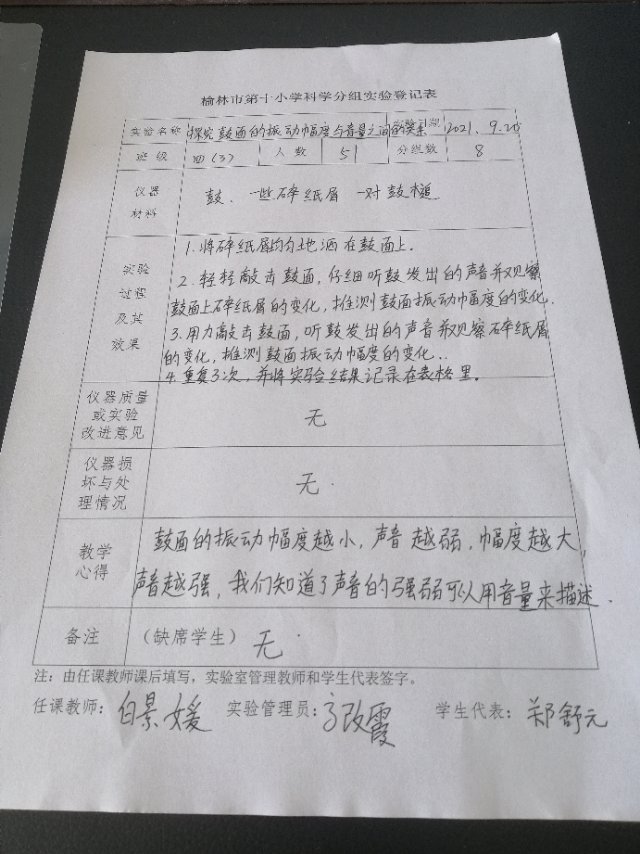 榆林市第十小学科学分组实验登记表
实验名称 探究鼓面的振动幅度与音量之间的关系 2021、9.26
班级 四(3) 人数 51 分组数 8
仪器材料 鼓、一些碎纸屑 一对鼓槌
实验过程及其效果
1.将碎纸屑均匀地洒在鼓面上.
2.轻轻敲击鼓面,仔细听鼓发出的声音并观察
鼓面上碎纸屑的变化,推测鼓面振动幅度的变化.
3.用力敲击鼓面,听鼓发出的声音并观察碎纸屑
的变化,推测鼓面振动幅度的变化..
4.重复3次,并将实验结果记录在表格里。
仪器质量或实验改进意见 无
仪器损坏与处理情况 无.
教学心得
鼓面的振动幅度越小,声音越弱,幅度越大,
声音越强,我们知道了声音的强弱可以用音量来描述.
备注 (缺席学生) 无.
注:由任课教师课后填写,实验室管理教师和学生代表签字。
任课教师:白景媛 实验管理员:高改霞 学生代表:郑舒元